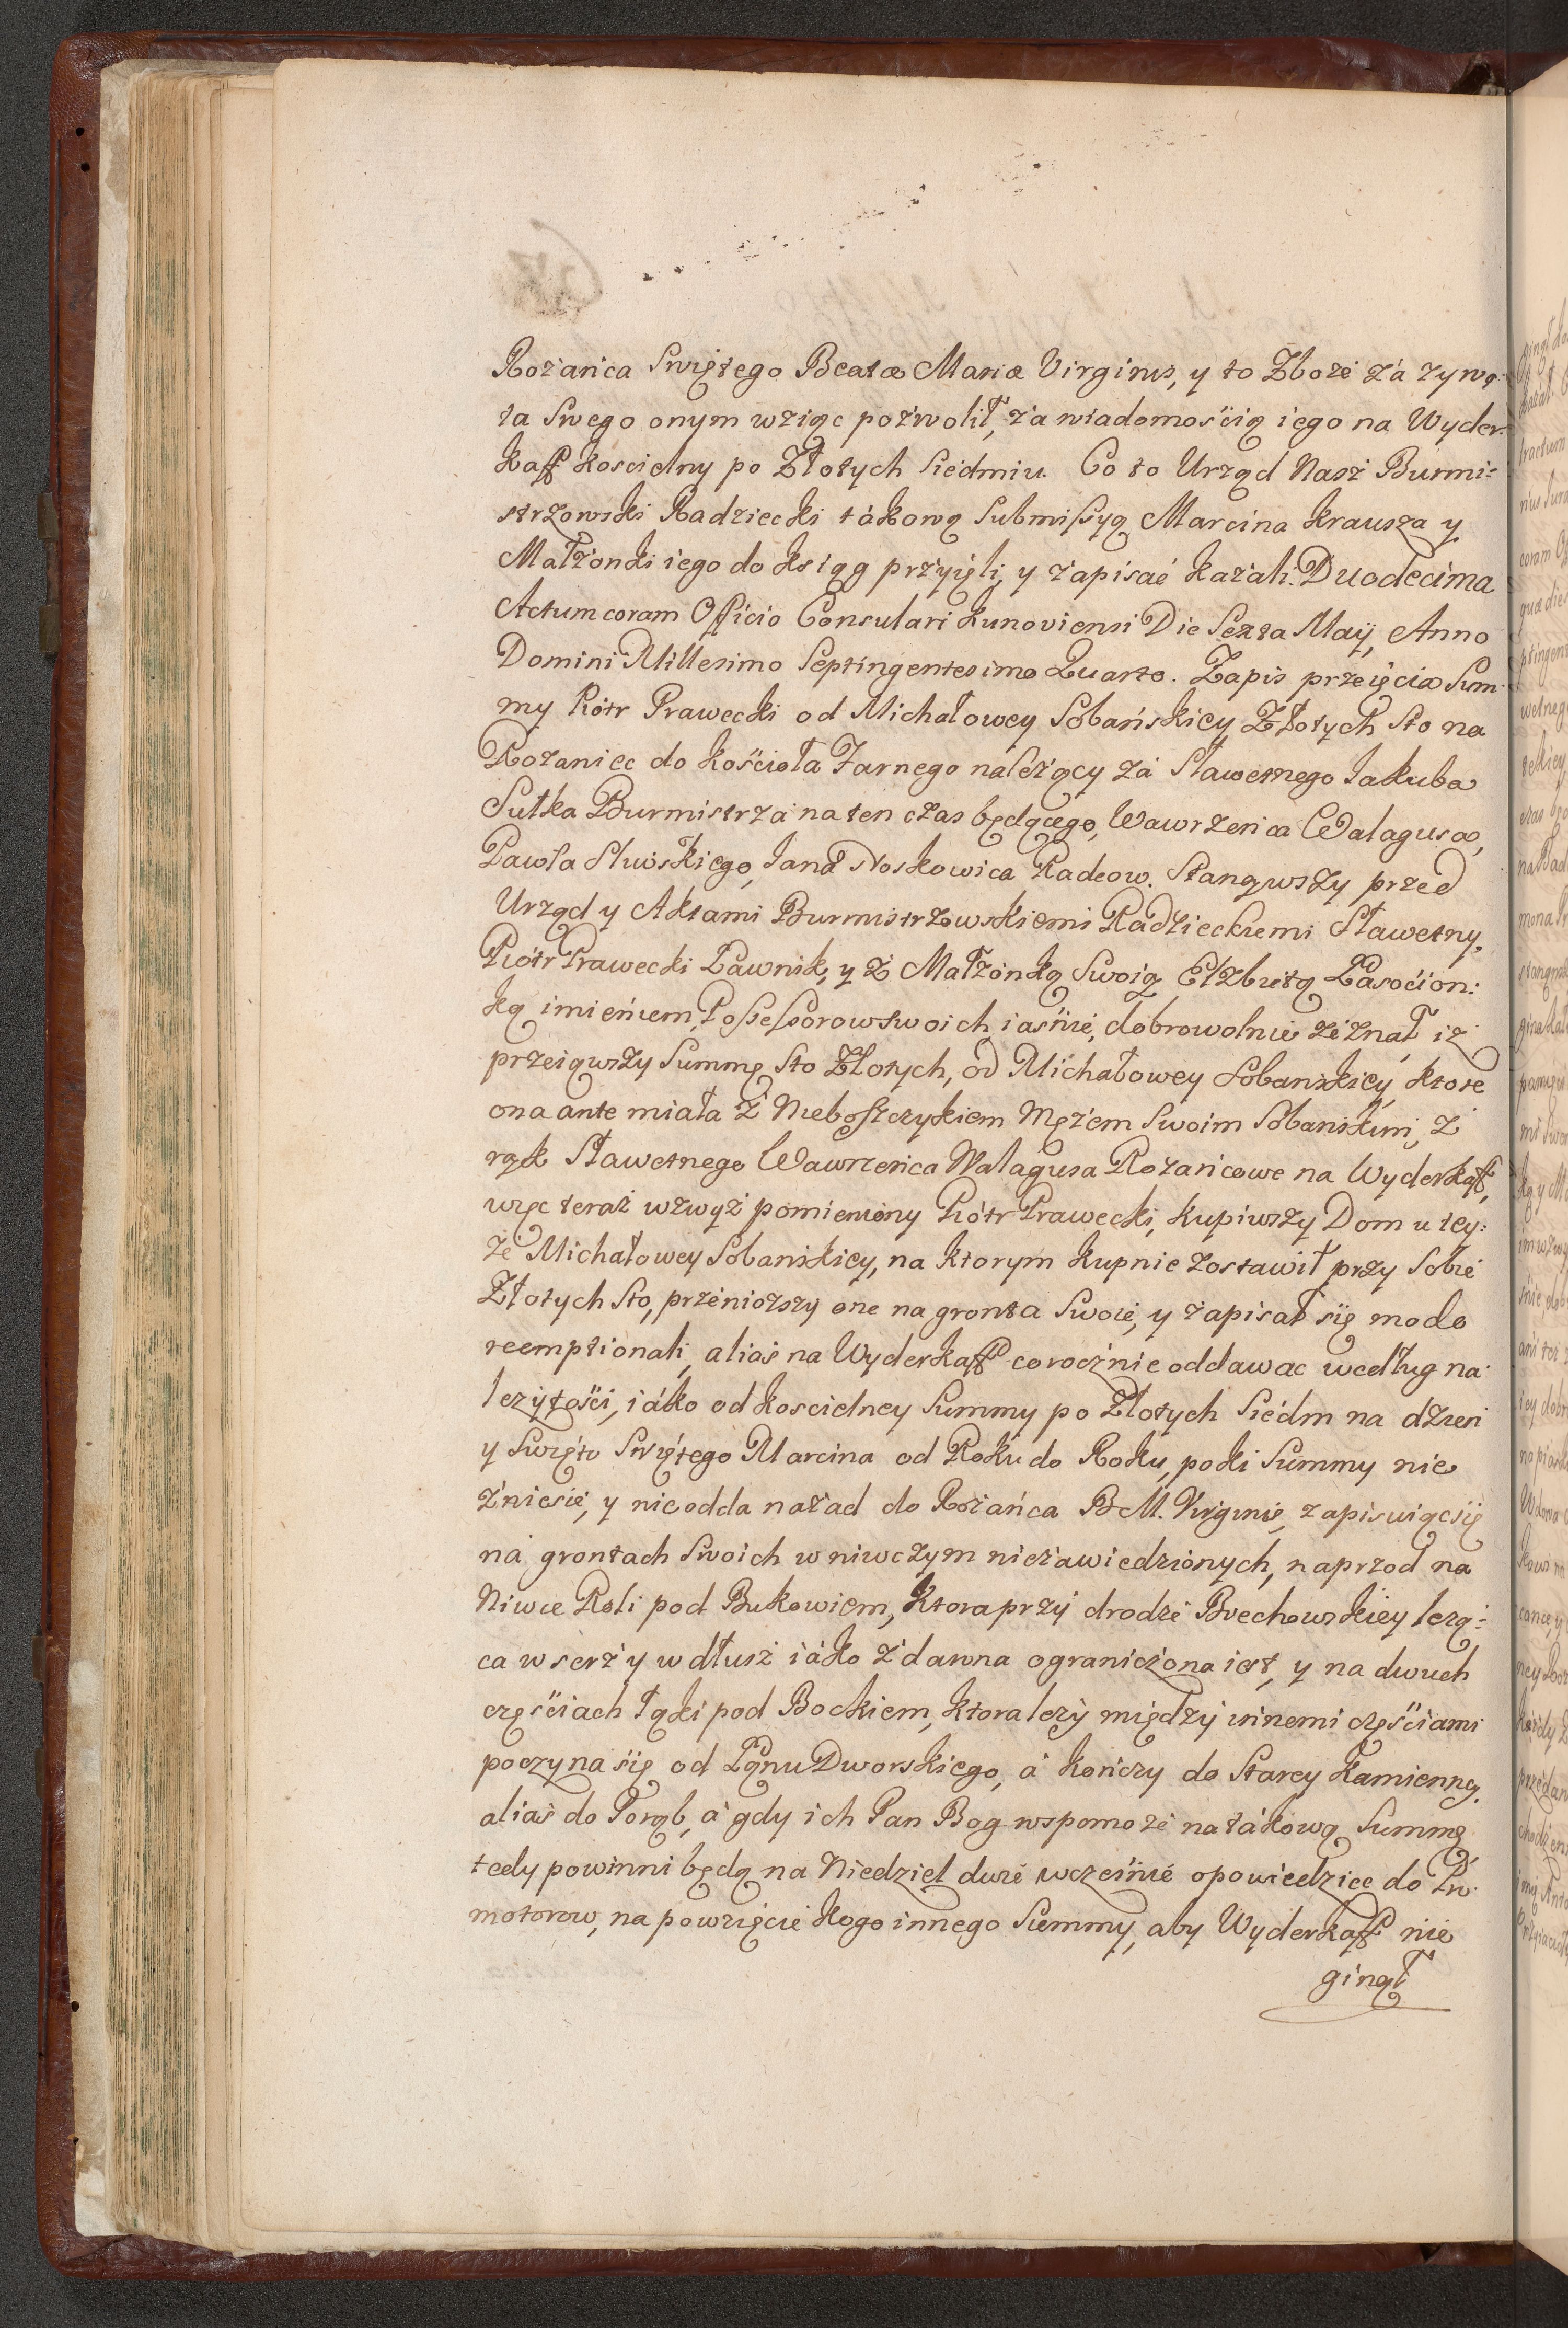 Rożańca Swiętego Beatæ Mariæ Virginis, y to Zboże zá zywo¬
ta Swego onym wziąc pozwolił, za wiadomością iego na Wyder¬
kaff koscielny po Złotych Siedmiu. Co to Urząd Nasz Burmi¬
strzowski Radziecki tákową Submissyą Marcina Krausza y
Małżonki iego do ksiąg przyięli, y zapisać kazali. Duodecima
Actum coram Officio Consulari Kunoviensi Die Sexta Maÿ, Anno
Domini Millesimo Septingentesimo Quarto. Zapis przeięcia Sum¬
my Piotr Prawecki od Michałowey Sobańskiey Złotych Sto na
Rożaniec do kościoła Farnego należący zá Sławetnego Iakuba
Sutka Burmistrza na ten czas będącego, Wawrzenca Walagusa,
Pawła Sliwskiego, Iana Noskowica Radcow. Stanąwszy przed
Urząd y Aktami Burmistrzowskiemi Radzieckiemi Sławetny,
Piotr Prawecki Ławnik, y z Małżonką Swoią Elzbietą Łasocion¬
ką imieniem Possessorow swoich iaśnie, dobrowolnie zeznał iz
przeiąwszy Summę Sto Złotych, od Michałowey Sobanskiey, ktore
ona ante miała z Nieboszczykiem Mężem Swoim Sobanskim, z
rąk Sławetnego Wawrzenca Walagusa Rożańcowe na Wyderkaff,
więc teraz wzwyż pomieniony Piotr Prawecki, kupiwszy Dom u tey¬
że Michałowey Sobanskiey, na ktorym kupnie zostawił przy Sobie
Złotych Sto, przeniozszy one na gronta Swoie, y zapisał się modo
reemptionali, alias na Wyderkaff corocznie oddawac według na¬
lezytości, iáko od koscielney Summy po Złotych Siedm na dzien
y Swięto Swiętego Marcina od Roku do Roku, poki Summy nie
zniesie, y nie odda nazad do Rożańca B M. Virginis, zapisuiąc się
na grontach Swoich w niwczym niezawiedzionych, naprzod na
Niwie Roli pod Bukowiem, ktora przy drodze Brechowskiey leżą¬
ca w szerz y w dłusz iáko zdawna ograniczona iest, y na dwuch
częściach łąki pod Bockiem, ktora leży między innemi częściami
poczyna się od Łąnu Dworskiego, á kończy do Starey Kamienney
alias do Poręb, á gdy ich Pan Bog wspomoże na tákową Summę
tedy powinni będą na Niedziel dwie wcześnie opowiedziec do Pro¬
motorow, na powzięcie kogo innego Summy, aby Wyderkaff nie
ginął